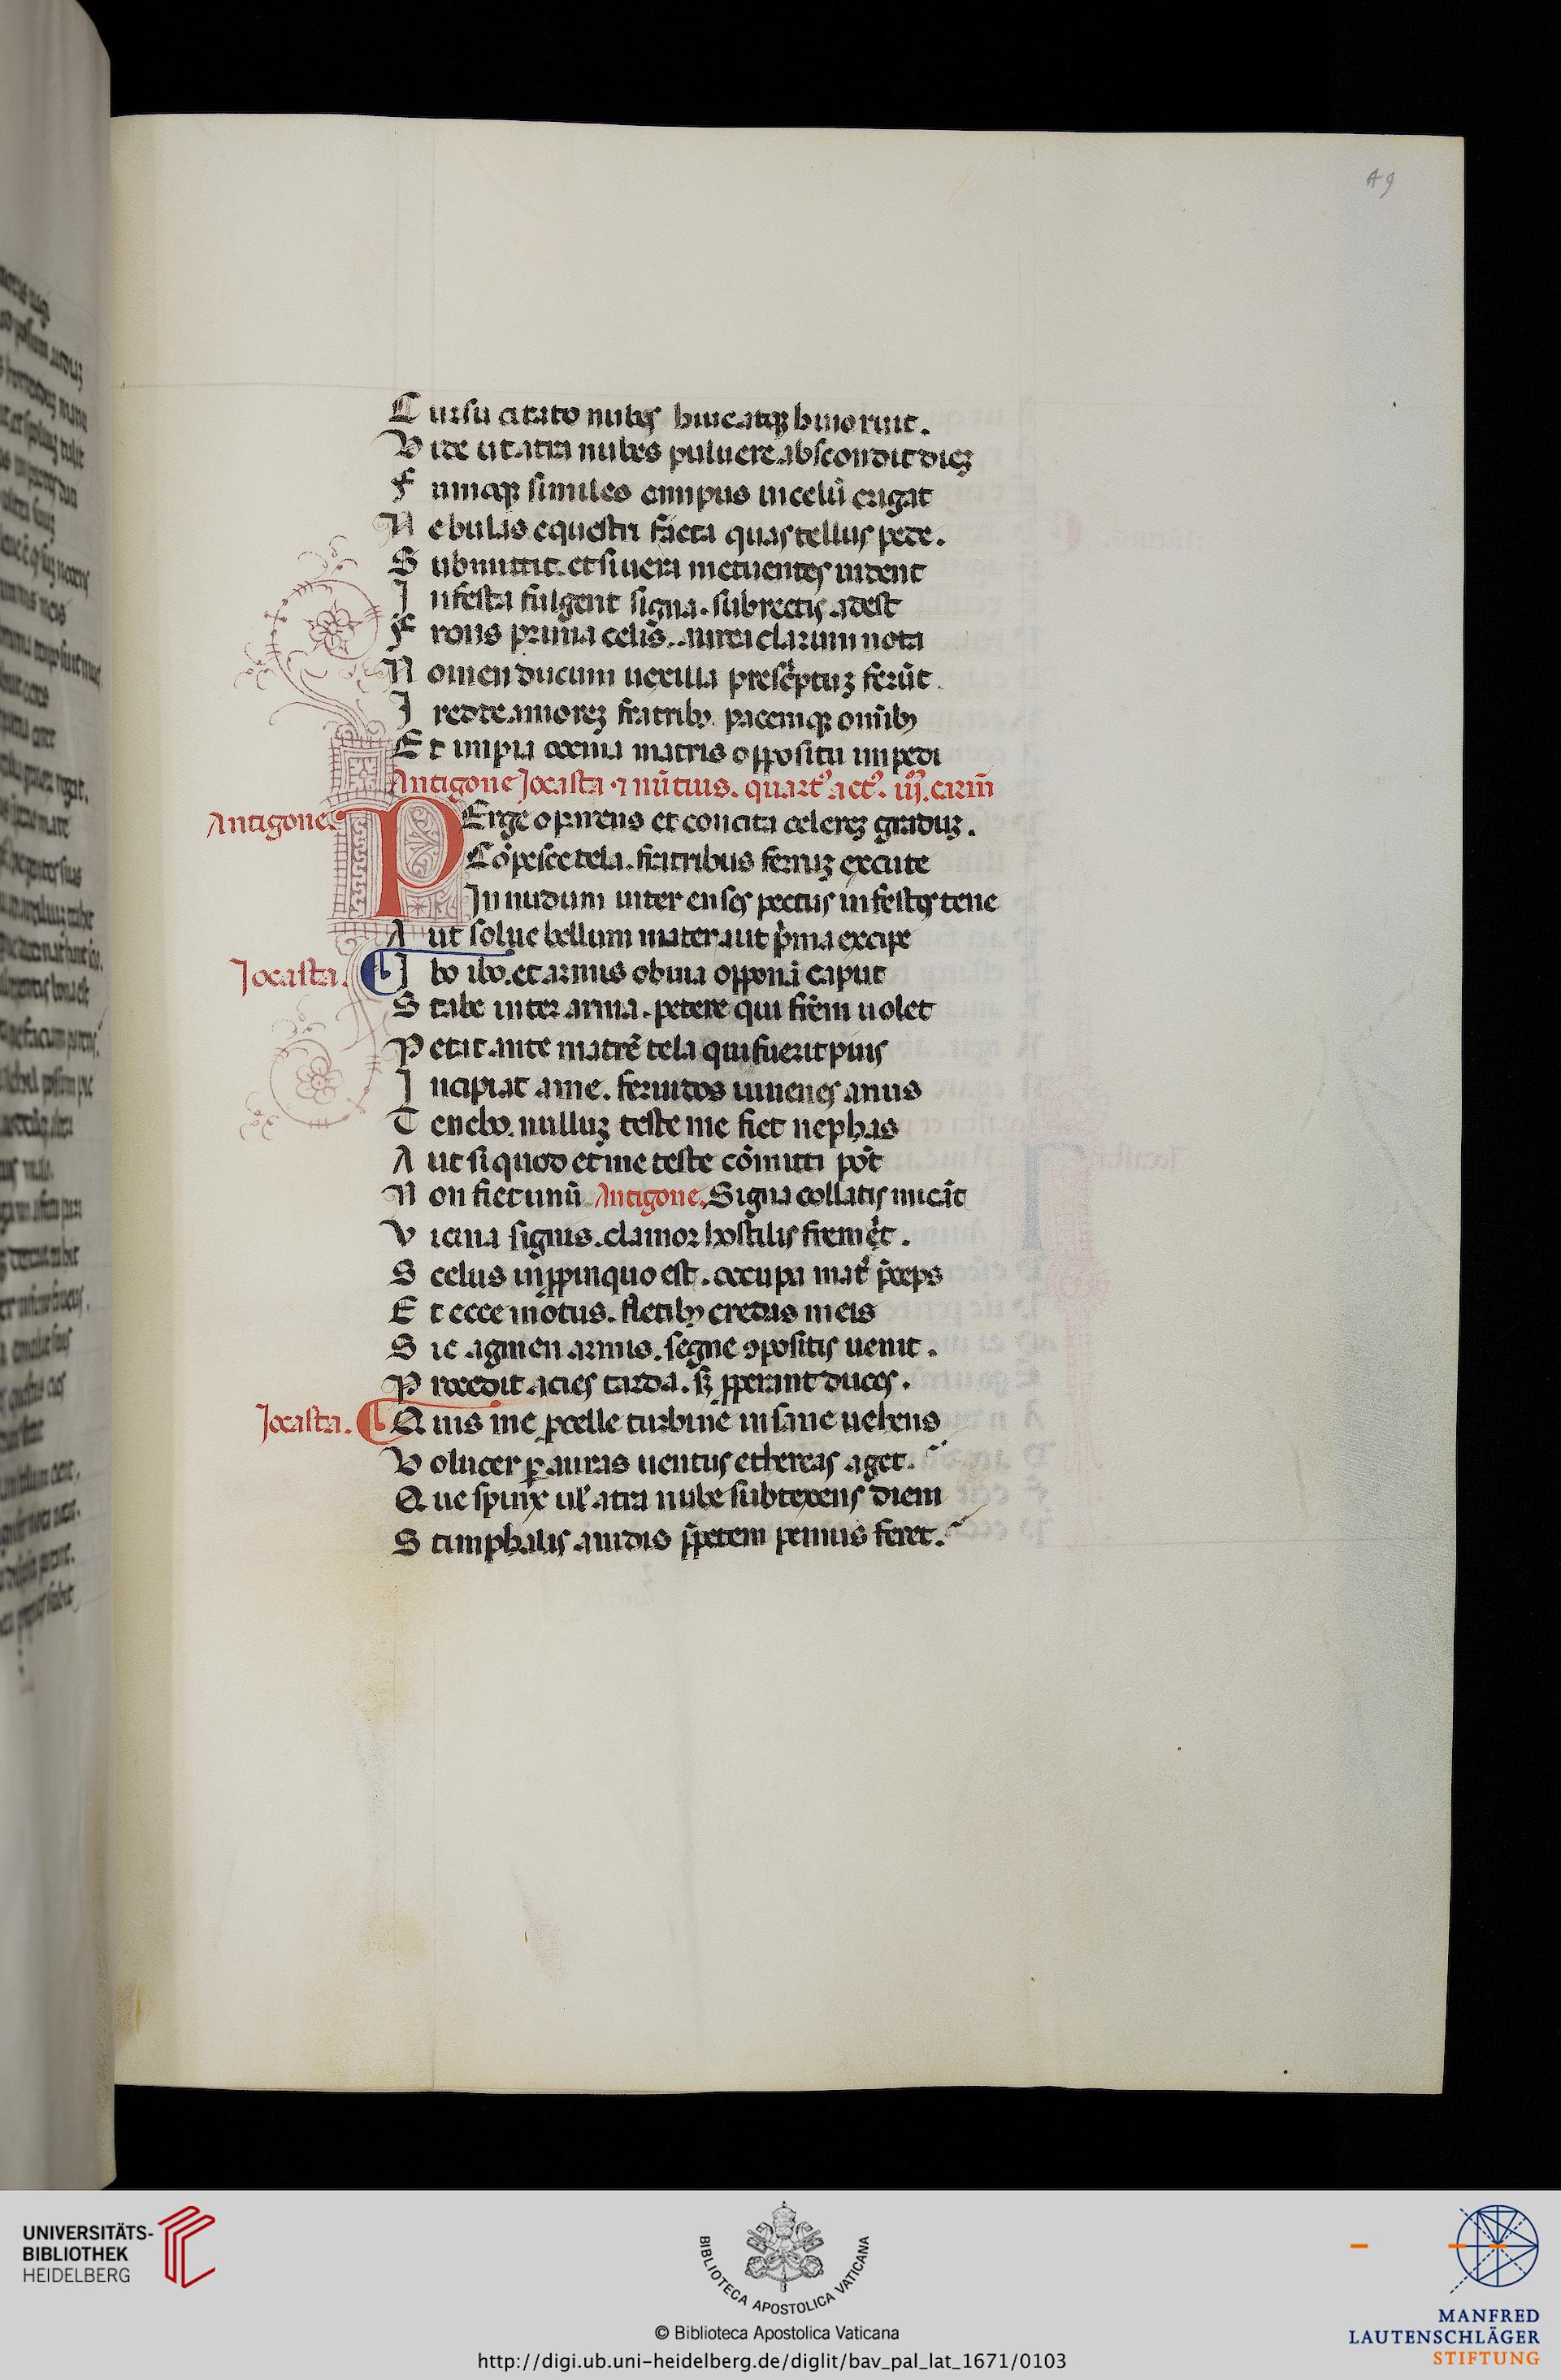 49
Cursu citato nubes huc atqꝫ huc ruit.
Vide ut atra nubes puluere abscondit dieꝫ
Fumiqꝫ similes campus in celū erigat
Nebulas equestri facta quas tellus pede.
Submittit. et si uera metuentes uident
Infesta fulgent signa. subrectis adest
Frons prima celis. aurea clarum nota
Nomen ducum uexilla prescͥptuꝫ ferūt.
I redde amoreꝫ fratribꝫ. pacemqꝫ omībꝫ
Et impia arma matris oppositu impedi
Antigone Jocasta ⁊ nūtius. quartꝰ actꝰ. iij. carm̄
Antigone.
PErge o parens et concita celereꝫ graduꝫ.
Cōpesce tela. fratribus ferruꝫ excute
In nudum inter enses pectus infestos tene
Aut solue bellum mater aut pͥma excipe
Jocasta.
Ibo ibo. et armis obuia opponā caput
Stabo inter arma. petere qui fr̄em uolet
Petat ante matrē tela qui fuerit pius
Incipiat a me. feruidos iuuenes anus
Tenebo. nulluꝫ teste me fiet nephas
Aut si quod et me teste cōmitti pōt
Non fiet unū. Antigone. Signa collatis micāt
Vicina signis. clamor hostilis fremit.
Scelus in ꝓpinquo est. occupa mat̄ p̄ceps
Et ecce motus. fletibꝫ credas meis
Sic agmen armis. segne ꝯpositis uenit.
Procedit acies tarda. sꝫ ꝓperant duces.
Jocasta.
Quis me ꝓcelle turbine insane uehens
Volucer ꝑ auras uentus ethereas aget.
Que spinx ul̄ atra nube subtexens diem
Stimphalis auidis p̄petem pennis feret.
UNIVERSITÄTS-
BIBLIOTHEK
HEIDELBERG
BIBLIOTECA APOSTOLICA VATICANA
© Biblioteca Apostolica Vaticana
http://digi.ub.uni-heidelberg.de/diglit/bav_pal_lat_1671/0103
MANFRED
LAUTENSCHLÄGER
STIFTUNG